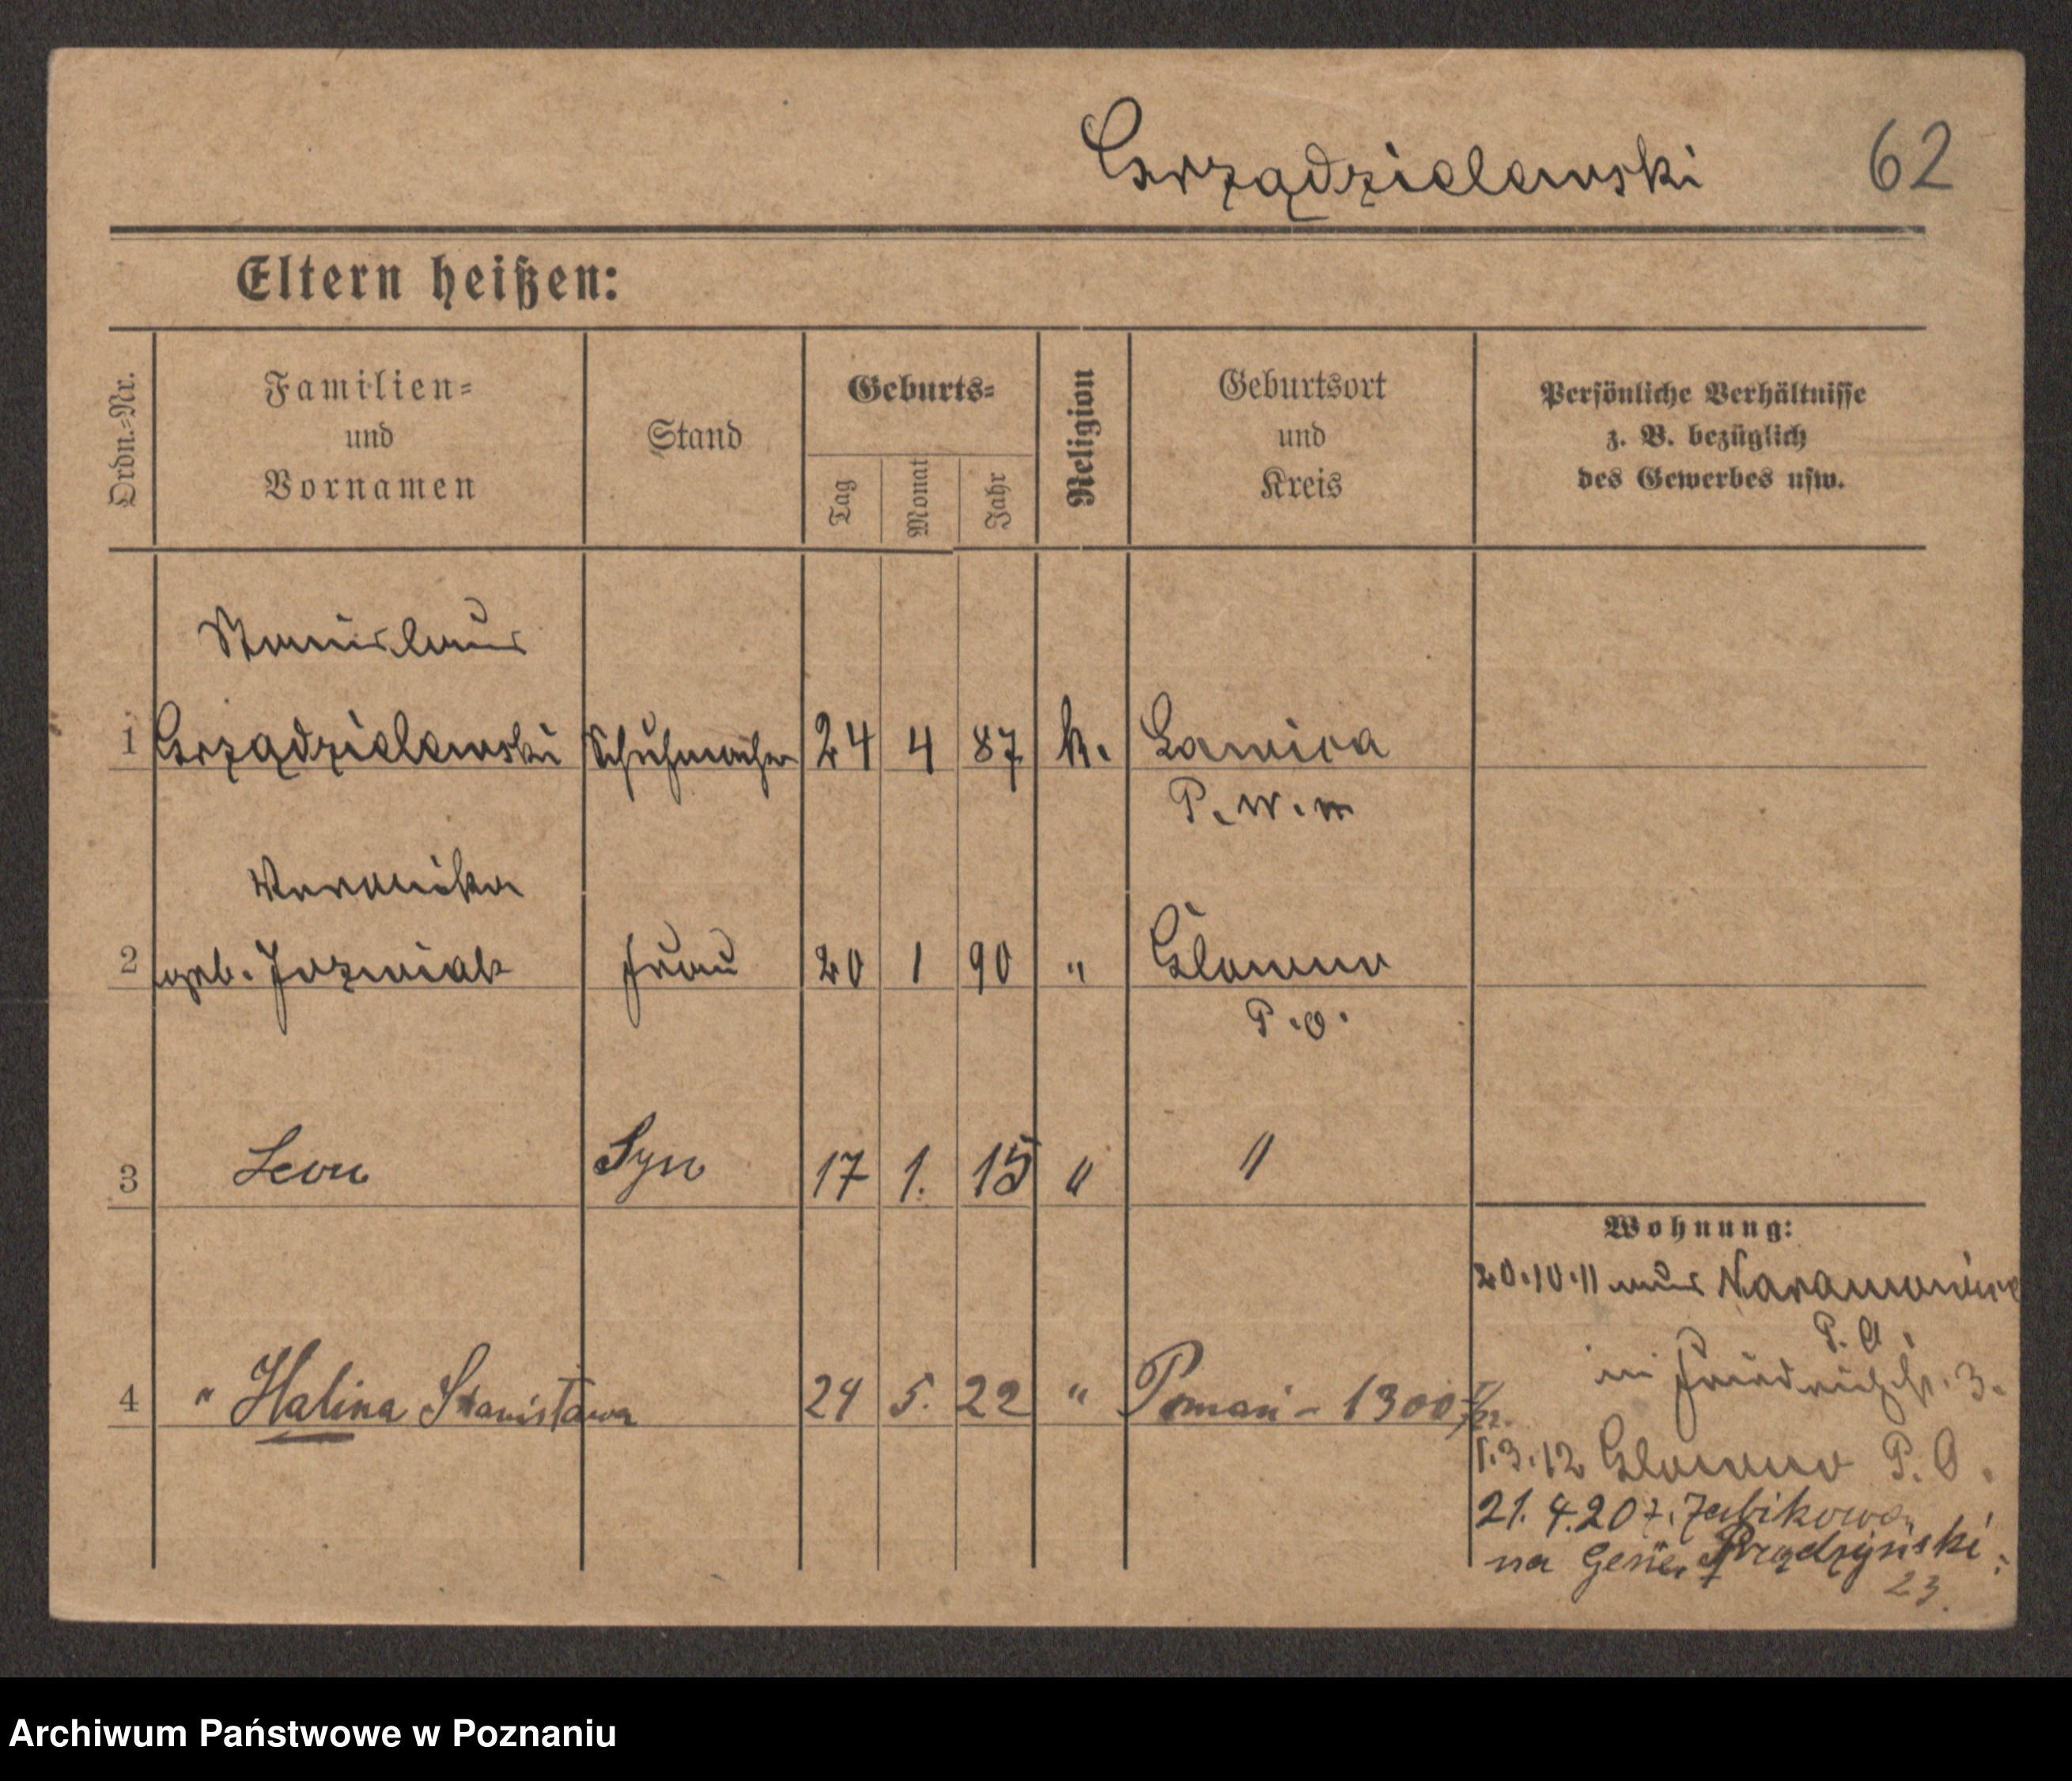 Grządzielewski 62
Eltern heißen:
Ordn.-Nr.
Familien-
und
Vornamen
Stand
Geburts-
Tag
Monat
Jahr
Religion
Geburtsort
und
Kreis
Persönliche Verhältnisse
z. B. bezüglich
des Gewerbes usw.
Stanislaus
1 Grządzielewski Schuhmacher 24 4 87 k. Lawica
P. W.
Veronika
2 geb. Jozwiak Frau 20 1 90 " Glowno
P. O.
3 Leon Syn 17 1. 15 " "
Wohnung:
20.10.11 aus Naramowice
P. O.
in Friedrichstr. 3.
4 " Halina Stanisława 24 5. 22 " Poznań - 1300
1.3.12 Glowno P. O.
21.4.20 z. Żabikowa
na Gener. Prądzyński
23.
Archiwum Państwowe w Poznaniu